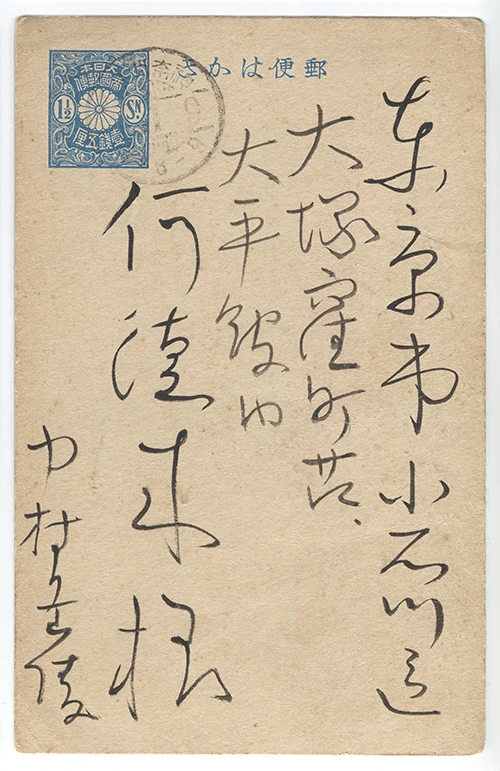 郵便はかき
大日本
帝國郵便
1½ SN.
壹銭五厘
東京市小石川区
大塚窪町
大平館内
何徳来様
中村